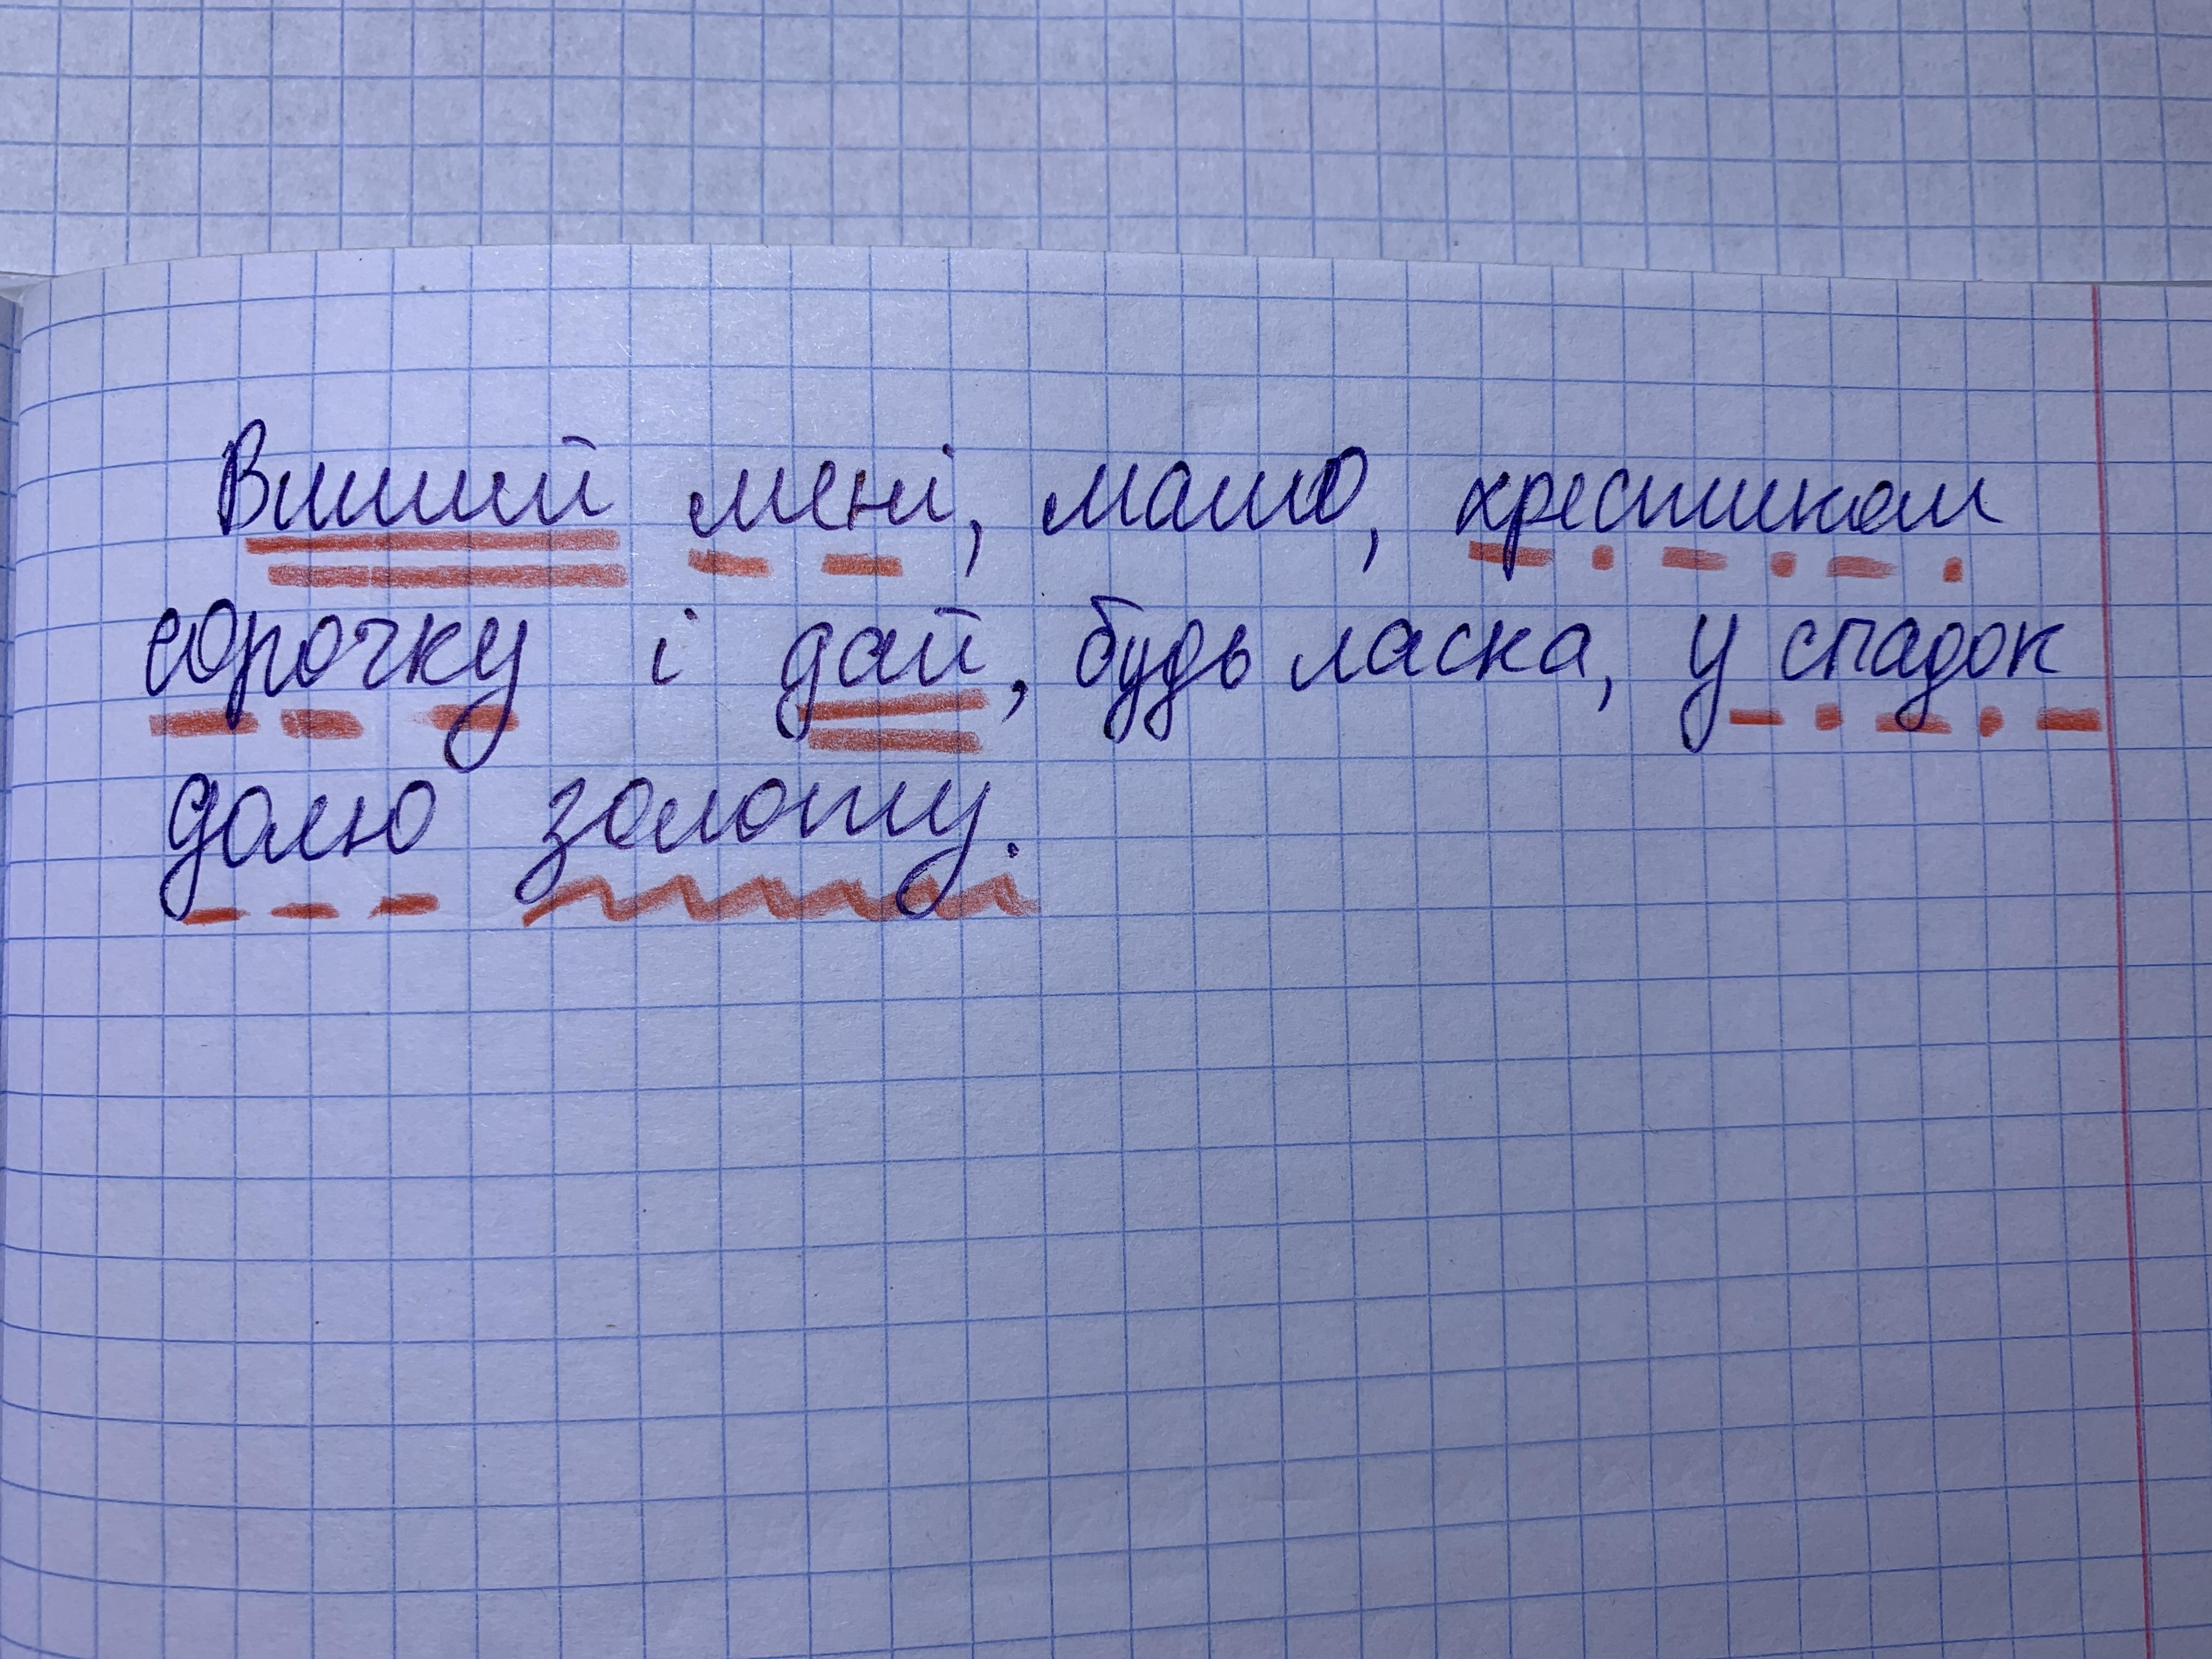 Виший мені, мамо, хрестиком
сорочку і дай, будь ласка, у спадок
долю золоту.